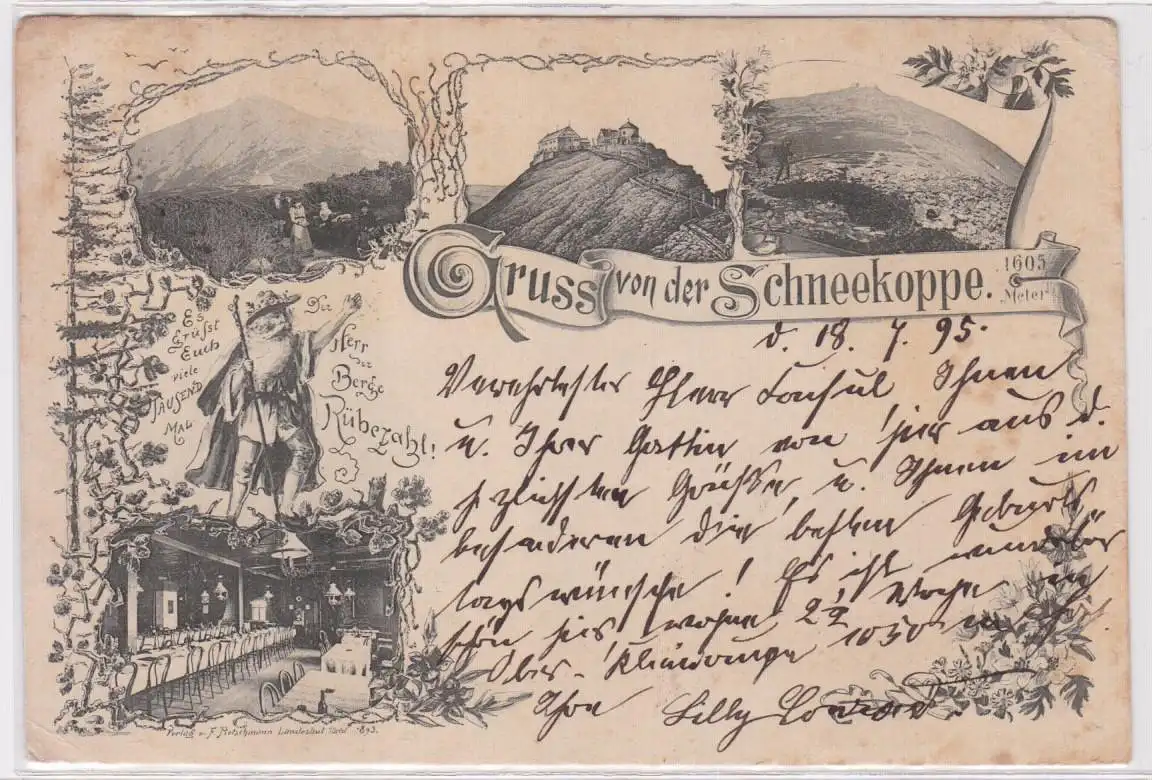 Gruss von der Schneekoppe.
1605 Meter
Es
Grüsst
Euch
viele
TAUSEND
MAL
Der
Herr
der
Berge
Rübezahl!
d. 18. 7. 95.
Verehrtester Herr Konsul Ihnen
u. Ihrer Gattin von hier aus d.
herzlichsten Grüsse, u. Ihnen im
besonderen die besten Geburts
tagswünsche! Es ist wunderbar
schön hier, wohne 2½ Woche in
Ober- 1050 m
Ihre Lilly
Verlag v. F. Landeshut 1893.